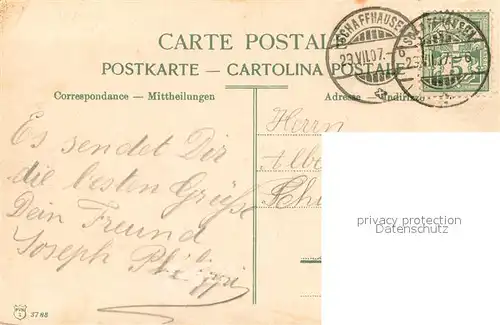 CARTE POSTALE
POSTKARTE – CARTOLINA POSTALE
Correspondance – Mittheilungen
Adresse – Indirizzo
SCHAFFHAUSEN
23.VII.07.–6
SCHAFFHAUSEN
23.VII.07.–6
5
Es sendet Dir
die besten Grüße
Dein Freund
Joseph
Herrn
privacy protection
Datenschutz
3768